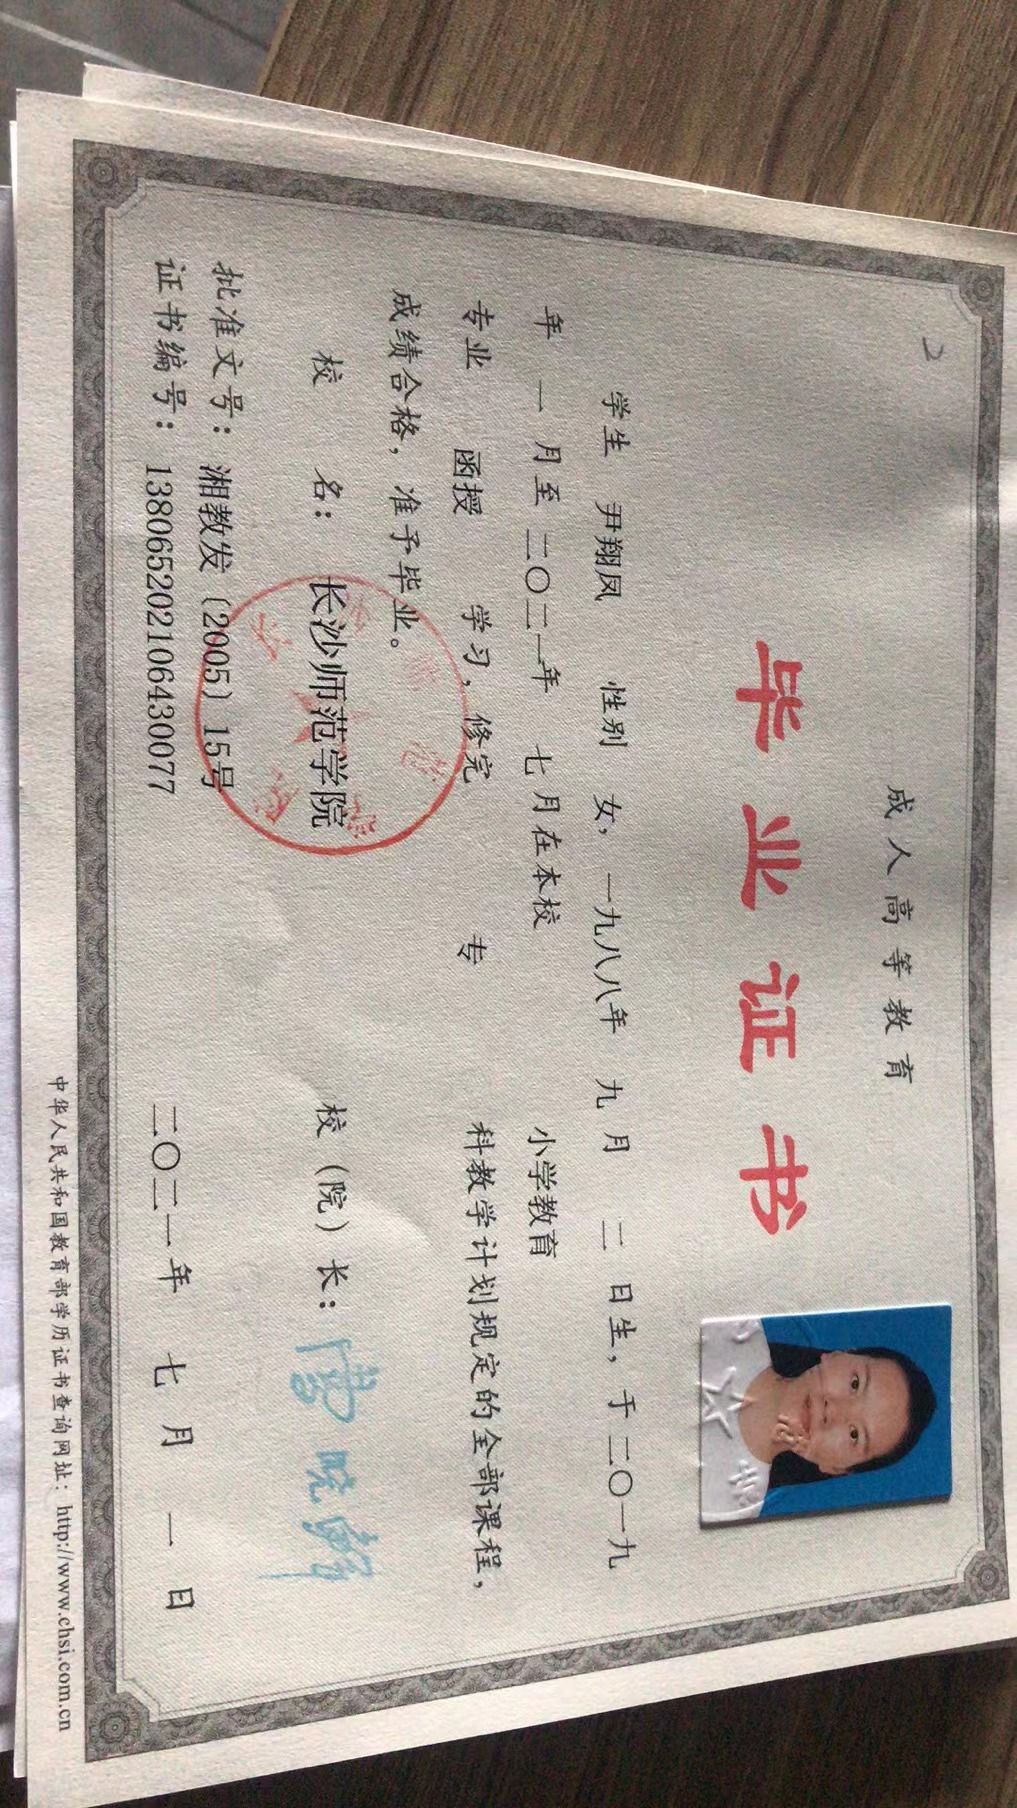 成人高等教育
毕业证书
学生 尹翔凤 性别 女，一九八八年 九 月 二 日生，于二〇一九
年 一 月至二〇二一年 七 月在本校 小学教育
专业 函授 学习，修完 专 科教学计划规定的全部课程，
成绩合格，准予毕业。
校 名：长沙师范学院 校（院）长：
批准文号：湘教发〔2005〕15号
证书编号：138065202106430077 二〇二一年 七 月 一 日
中华人民共和国教育部学历证书查询网址：http://www.chsi.com.cn